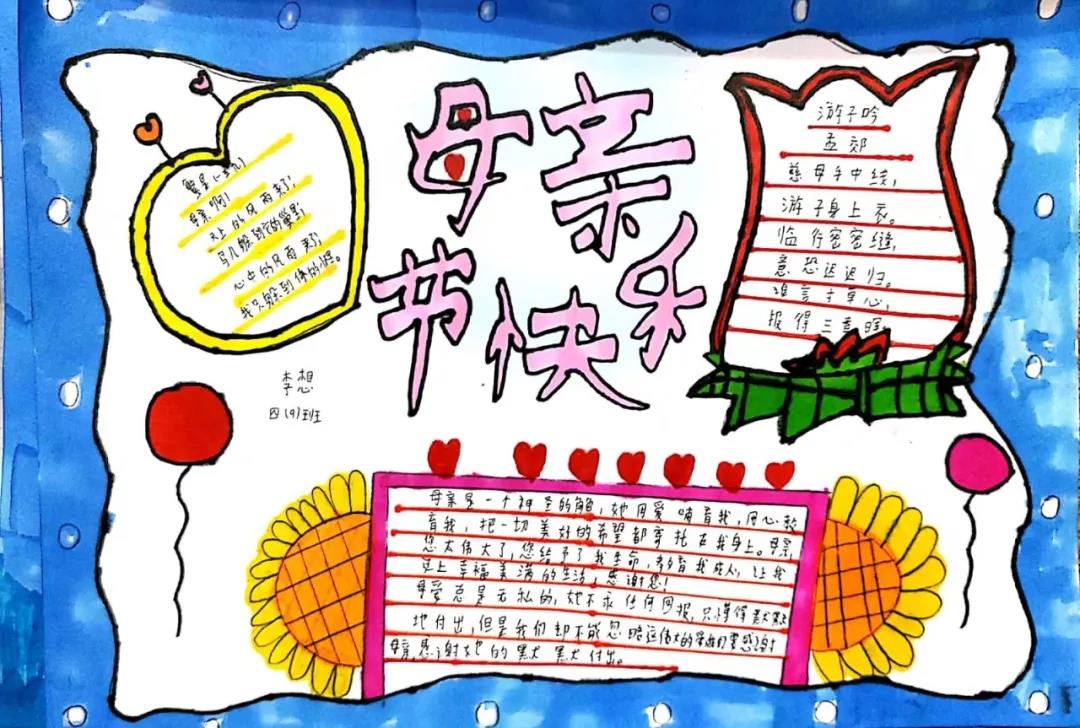 母亲
节快乐
繁星(一五九)
母亲啊!
天上的风雨来了,
鸟儿躲到它的巢里;
心中的风雨来了,
我只躲到你的怀里。
李想
四(9)班
游子吟
孟郊
慈母手中线,
游子身上衣。
临行密密缝,
意恐迟迟归。
谁言寸草心,
报得三春晖
母亲是一个神圣的角色,她用爱哺育我,用心教
育我,把一切美好的希望都寄托在我身上。母亲,
您太伟大了,您给予了我生命,养育我成人,让我
过上幸福美满的生活,感谢您!
母爱总是无私的,她不求任何回报,只懂得默默
地付出,但是我们却不能忽略这伟大的 们要感谢
母亲,感谢她的默默付出。